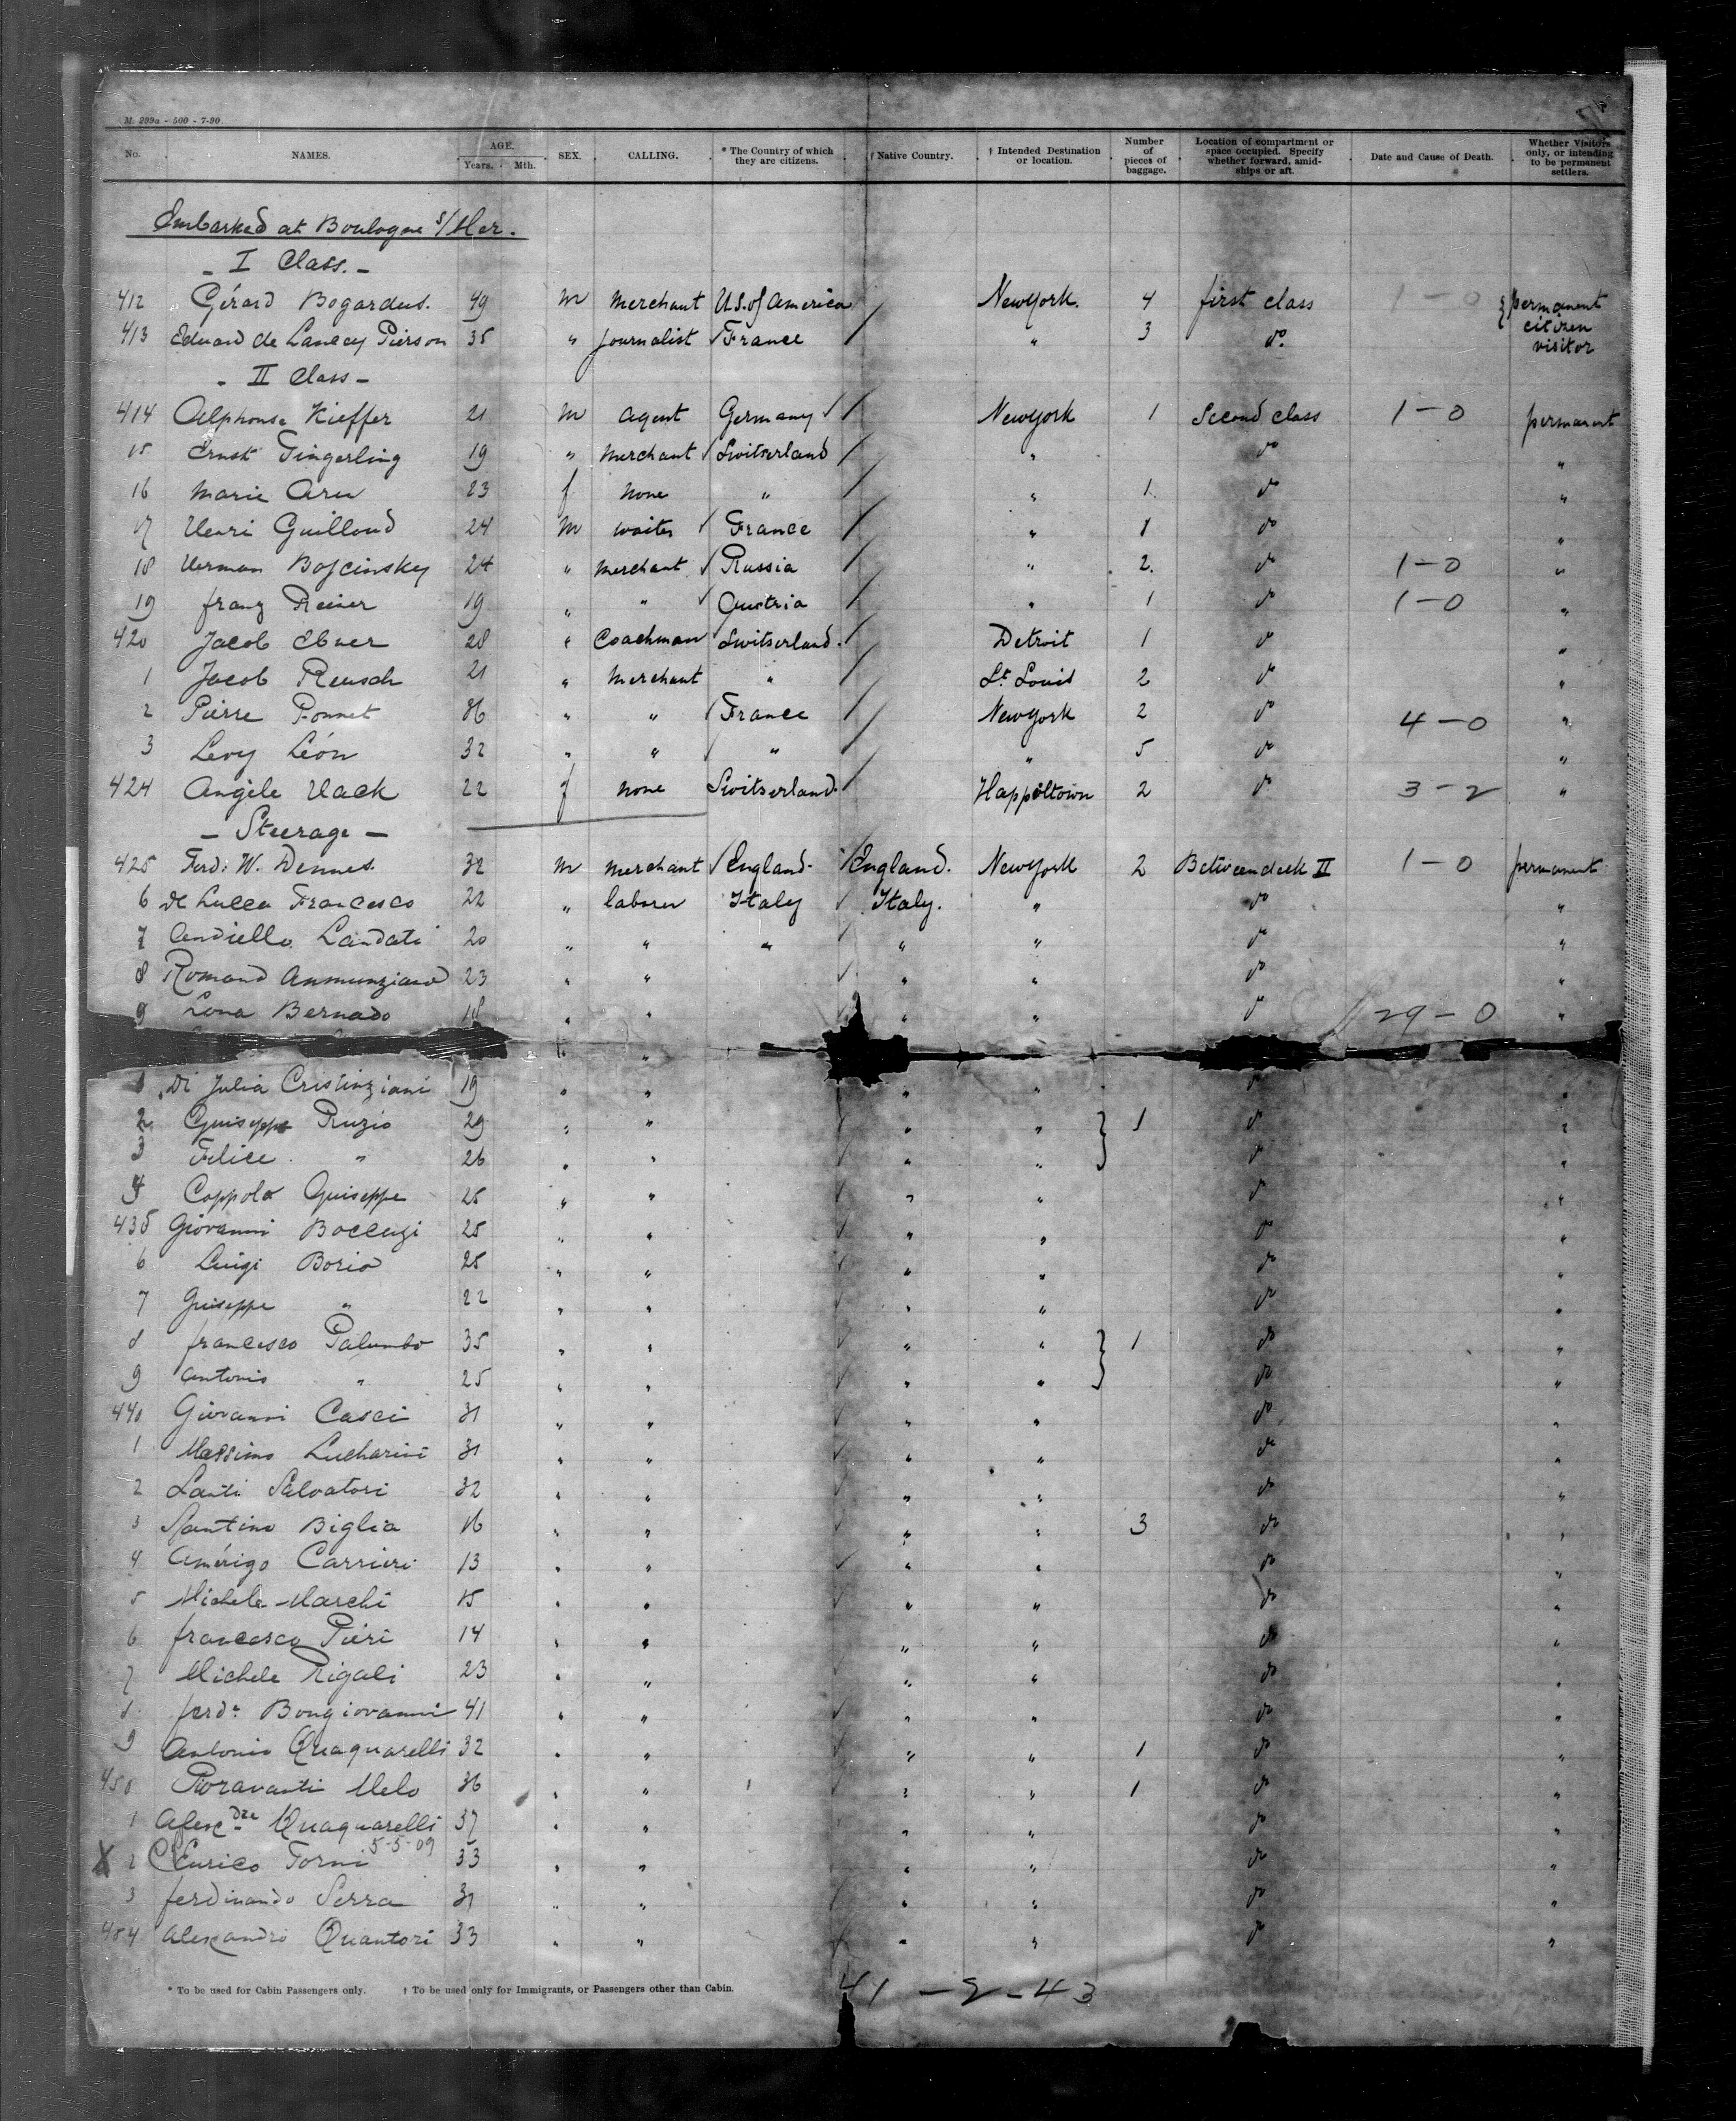 M. 299a - 500 - 7-90
No. NAMES. AGE. Years. Mth. SEX. CALLING. * The Country of which they are citizens. † Native Country. † Intended Destination or location. Number of pieces of baggage. Location of compartment or space occupied. Specify whether forward, amidships or aft. Date and Cause of Death. Whether Visitors only, or intending to be permanent settlers.
Embarked at Boulogne s/Mer.
- I Class. -
412 Gérard Bogardus. 49 m merchant U.S. of America NewYork. 4 first class 1 - 0 permanent citizen
413 Eduard de Lancey Pierson 35 " journalist France " 3 do. visitor
- II Class -
414 Alphonse Kieffer 21 m agent Germany NewYork 1 Second class 1 - 0 permanent
15 Ernst Gingerling 19 " merchant Switserland " do "
16 Marie Aru 23 f none " " 1. do "
17 Henri Guilloud 24 m waiter France " 1 do "
18 Herman Boscinsky 24 " merchant Russia " 2. do 1 - 0 "
19 franz Reiner 19 " " Austria " 1 do 1 - 0 "
420 Jacob Ebner 28 " Coachman Switserland. Detroit 1 do "
1 Jacob Reusch 21 " merchant " St. Louis 2 do "
2 Pierre Ponnet 36 " " France NewYork 2 do 4 - 0 "
3 Levy Léon 32 " " " " 5 do "
424 Angèle Hack 22 f none Switserland Happeltown 2 do 3 - 2 "
- Steerage -
425 Ferd. W. Dennes. 32 m merchant England. England. NewYork 2 Betweendeck II 1 - 0 permanent
6 de Lucca Francesco 22 " laborer Italy Italy. " do "
7 Andiello Landati 20 " " " " " do "
8 Romano Annunziano 23 " " " " do "
9 Lona Bernado 18 " " " " do 29 - 0 "
1 Di Julia Cristinziani 19 " " " " do "
2 Guiseppe Ruzio 29 " " " " 1 do "
3 Felice " 26 " " " " do "
4 Coppola Guiseppe 25 " " " " do "
435 Giovanni Boccuzi 25 " " " " do "
6 Luigi Borio 25 " " " " do "
7 Guiseppe " 22 " " " " do "
8 francesco Palumbo 35 " " " " 1 do "
9 Antonio " 25 " " " " do "
440 Giovanni Casci 31 " " " " do "
1 Massimo Lucharini 31 " " " " do "
2 Santi Salvatori 32 " " " " do "
3 Santino Biglia 16 " " " " 3 do "
4 Amérigo Carrieri 13 " " " " do "
5 Michele Marchi 15 " " " " do "
6 francesco Pieri 14 " " " " do "
7 Michele Rigali 23 " " " " do "
8 ferd. Bongiovanni 41 " " " " do "
9 Antonio Quaquarelli 32 " " " " 1 do "
450 Fioravanti Melo 36 " " " " 1 do "
1 Alexdre Quaquarelli 37 " " " " do "
5-5-09
X 2 Enrico Torni 33 " " " " do "
3 ferdinando Serra 31 " " " " do "
454 Alexandro Quantori 33 " " " " do "
* To be used for Cabin Passengers only. † To be used only for Immigrants, or Passengers other than Cabin.
41 - 2 - 43